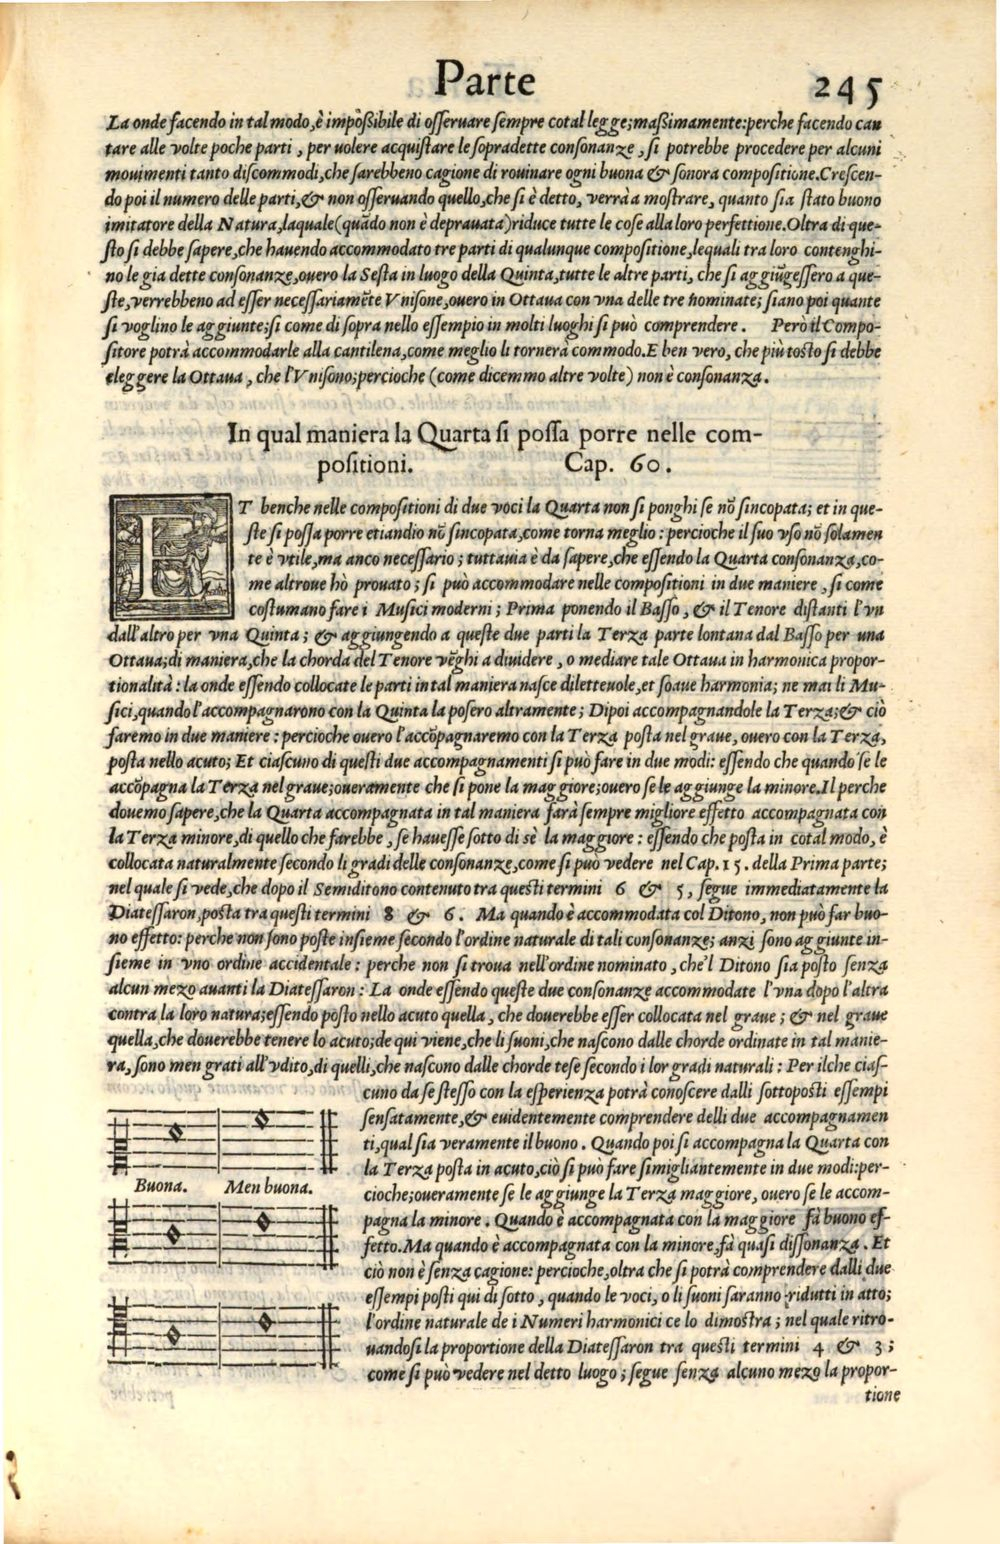 Parte 245
La onde facendo in tal modo, è impoßibile di oſſeruare ſempre cotal legge; maßimamente: perche facendo can
tare alle volte poche parti, per volere acquiſtare le ſopradette conſonanze, ſi potrebbe procedere per alcuni
mouimenti tanto diſcommodi, che ſarebbeno cagione di rouinare ogni buona & ſonora compoſitione. Creſcen-
do poi il numero delle parti, & non oſſeruando quello, che ſi è detto, verrà a moſtrare, quanto ſia ſtato buono
imitatore della Natura, laquale (quãdo non è deprauata) riduce tutte le coſe alla loro perfettione. Oltra di que-
ſto ſi debbe ſapere, che hauendo accommodato tre parti di qualunque compoſitione, lequali tra loro contenghi-
no le gia dette conſonanze, ouero la Seſta in luogo della Quinta, tutte le altre parti, che ſi aggiũgeſſero a que-
ſte, verrebbeno ad eſſer neceſſariamẽte Vniſone, ouero in Ottaua con vna delle tre nominate; ſiano poi quante
ſi voglino le aggiunte; ſi come di ſopra nello eſſempio in molti luoghi ſi può comprendere. Però il Compo-
ſitore potrà accommodarle alla cantilena, come meglio li tornerà commodo. E ben vero, che più toſto ſi debbe
eleggere la Ottaua, che l'Vniſono; percioche (come dicemmo altre volte) non è conſonanza.
In qual maniera la Quarta ſi poſſa porre nelle com-
poſitioni. Cap. 60.
ET benche nelle compoſitioni di due voci la Quarta non ſi ponghi ſe nõ ſincopata; et in que-
ſte ſi poſſa porre etiandio nõ ſincopata, come torna meglio: percioche il ſuo vſo nõ ſolamen
te è vtile, ma anco neceſſario; tuttauia è da ſapere, che eſſendo la Quarta conſonanza, co-
me altroue hò prouato; ſi può accommodare nelle compoſitioni in due maniere, ſi come
coſtumano fare i Muſici moderni; Prima ponendo il Baſſo, & il Tenore diſtanti l'vn
dall'altro per vna Quinta; & aggiungendo a queſte due parti la Terza parte lontana dal Baſſo per una
Ottaua; di maniera, che la chorda del Tenore vẽghi a diuidere, o mediare tale Ottaua in harmonica propor-
tionalità: la onde eſſendo collocate le parti in tal maniera naſce diletteuole, et ſoaue harmonia; ne mai li Mu-
ſici, quando l'accompagnarono con la Quinta la poſero altramente; Dipoi accompagnandole la Terza; & ciò
faremo in due maniere: percioche ouero l'accõpagnaremo con la Terza poſta nel graue, ouero con la Terza,
poſta nello acuto; Et ciaſcuno di queſti due accompagnamenti ſi può fare in due modi: eſſendo che quando ſe le
accõpagna la Terza nel graue; oueramente che ſi pone la maggiore; ouero ſe le aggiunge la minore. Il perche
douemo ſapere, che la Quarta accompagnata in tal maniera farà ſempre migliore effetto accompagnata con
la Terza minore, di quello che farebbe, ſe haueſſe ſotto di sè la maggiore: eſſendo che poſta in cotal modo, è
collocata naturalmente ſecondo li gradi delle conſonanze, come ſi può vedere nel Cap. 15. della Prima parte;
nel quale ſi vede, che dopo il Semiditono contenuto tra queſti termini 6 & 5, ſegue immediatamente la
Diateſſaron, poſta tra queſti termini 8 & 6. Ma quando è accommodata col Ditono, non può far buo-
no effetto: perche non ſono poſte inſieme ſecondo l'ordine naturale di tali conſonanze; anzi ſono aggiunte in-
ſieme in vno ordine accidentale: perche non ſi troua nell'ordine nominato, che'l Ditono ſia poſto ſenza
alcun mezo auanti la Diateſſaron: La onde eſſendo queſte due conſonanze accommodate l'vna dopo l'altra
contra la loro natura; eſſendo poſto nello acuto quella, che douerebbe eſſer collocata nel graue; & nel graue
quella, che douerebbe tenere lo acuto; de qui viene, che li ſuoni, che naſcono dalle chorde ordinate in tal manie-
ra, ſono men grati all'vdito, di quelli, che naſcono dalle chorde teſe ſecondo i lor gradi naturali: Per ilche ciaſ-
cuno da ſe ſteſſo con la eſperienza potrà conoſcere dalli ſottopoſti eſſempi
ſenſatamente, & euidentemente comprendere delli due accompagnamen
ti, qual ſia veramente il buono. Quando poi ſi accompagna la Quarta con
la Terza poſta in acuto, ciò ſi può fare ſimigliantemente in due modi: per-
cioche; oueramente ſe le aggiunge la Terza maggiore, ouero ſe le accom-
pagna la minore. Quando è accompagnata con la maggiore fà buono ef-
fetto. Ma quando è accompagnata con la minore, fà quaſi diſſonanza. Et
ciò non è ſenza cagione: percioche, oltra che ſi potrà comprendere dalli due
eſſempi poſti qui di ſotto, quando le voci, o li ſuoni ſaranno ridutti in atto;
l'ordine naturale de i Numeri harmonici ce lo dimoſtra; nel quale ritro-
uandoſi la proportione della Diateſſaron tra queſti termini 4 & 3;
come ſi può vedere nel detto luogo; ſegue ſenza alcuno mezo la propor-
tione
Buona. Men buona.